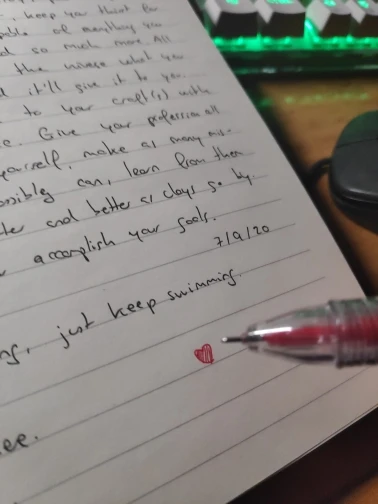 keep your thirst for
capable of everything you
so much more. All
the universe what you
it'll give it to you.
to your craft(s) with
Give your profession all
yourself, make as many mis-
possibly can, learn from them
and better as days go by.
accomplish your goals.
7/9/20
just keep swimming.